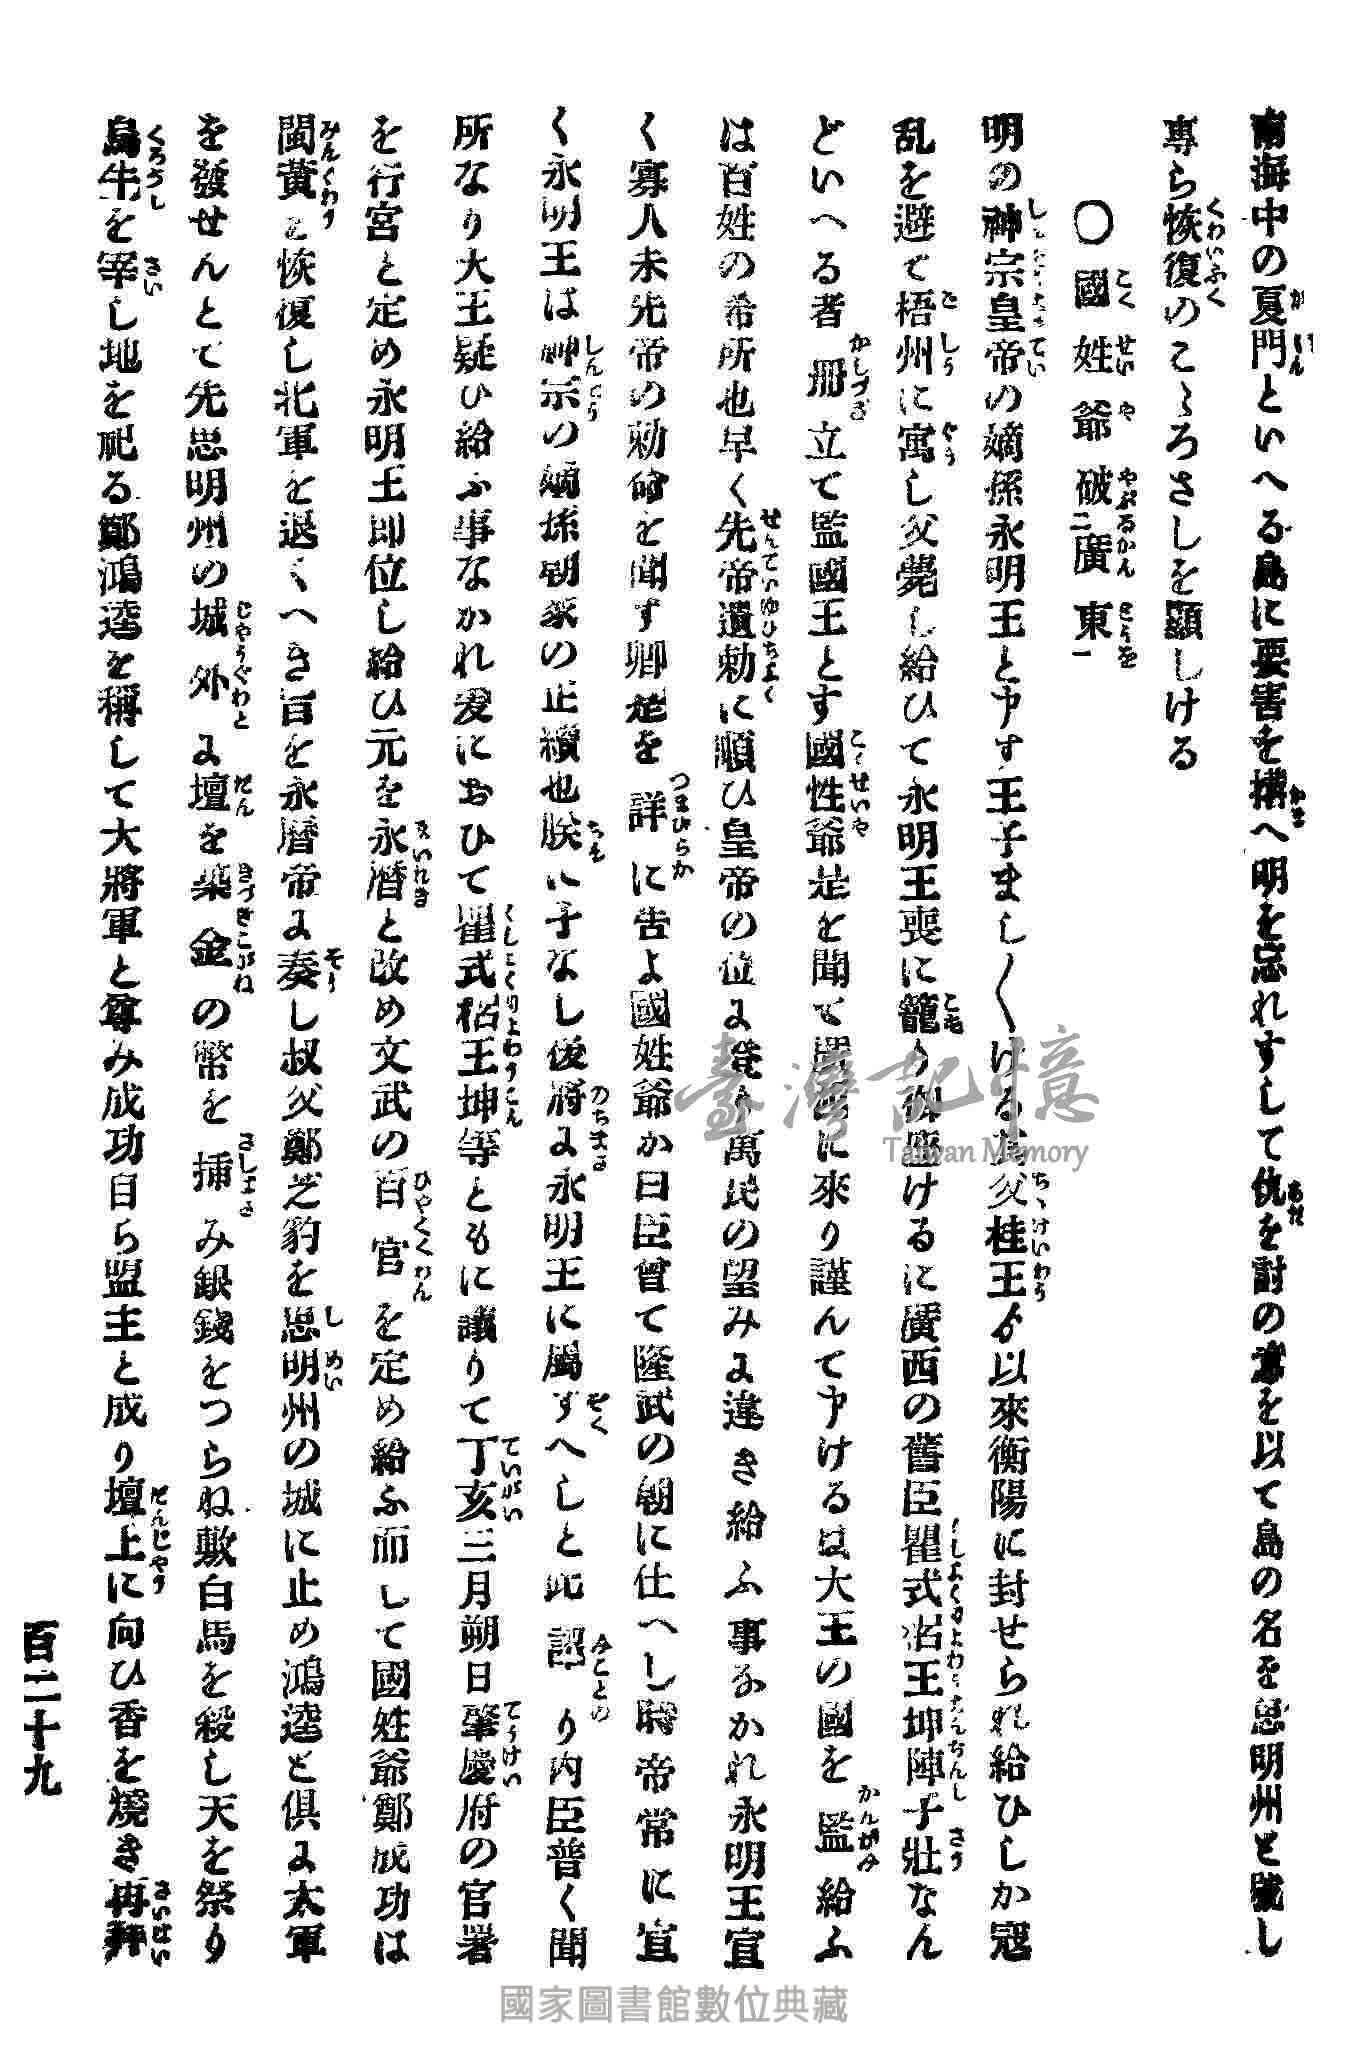 南海中の夏門といへる島に要害を搆へ明を忘れすして仇を討の意を以て島の名を思明州と號し
專ら恢復のこゝろさしを顯しける
〇國姓爺破廣東
明の神宗皇帝の嫡孫永明王と申す王子まし〱ける為父桂王ゟ以來衡陽に封せられ給ひしか寇
乱を避て梧州に寓し父薨し給ひて永明王喪に籠り御座けるに廣西の舊臣瞿式耜王坤陣子壯なん
どいへる者冊立て監國王とす國性爺是を聞て廣西に來り謹んて申けるは大王の國を監給ふ
は百姓の希所也早く先帝遺勅に順ひ皇帝の位に登り萬民の望みに違き給ふ事なかれ永明王宣
く寡人未先帝の勅命を聞す卿是を詳に告よ國姓爺か曰臣曾て隆武の朝に仕へし時帝常に宣
く永明王は神宗の嫡孫朝家の正續也朕に子なし後將に永明王に屬すへしと此詔り内臣普く聞
所なり大王疑ひ給ふ事なかれ爰におひて瞿式耜王坤等ともに議りて丁亥三月朔日肇慶府の官署
を行宮と定め永明王即位し給ひ元を永暦と改め文武の百官を定め給ふ而して國姓爺鄭成功は
閩黄を恢復し北軍を退くへき旨を永暦帝に奏し叔父鄭芝豹を思明州の城に止め鴻逵と倶に大軍
を發せんとて先思明州の城外に壇を築金の幣を挿み銀錢をつらね敷白馬を殺し天を祭り
烏牛を宰し地を祀る鄭鴻逵を稱して大將軍と尊み成功自ら盟主と成り壇上に向ひ香を燒き再拜
百二十九
臺灣記憶
Taiwan Memory
國家圖書館數位典藏